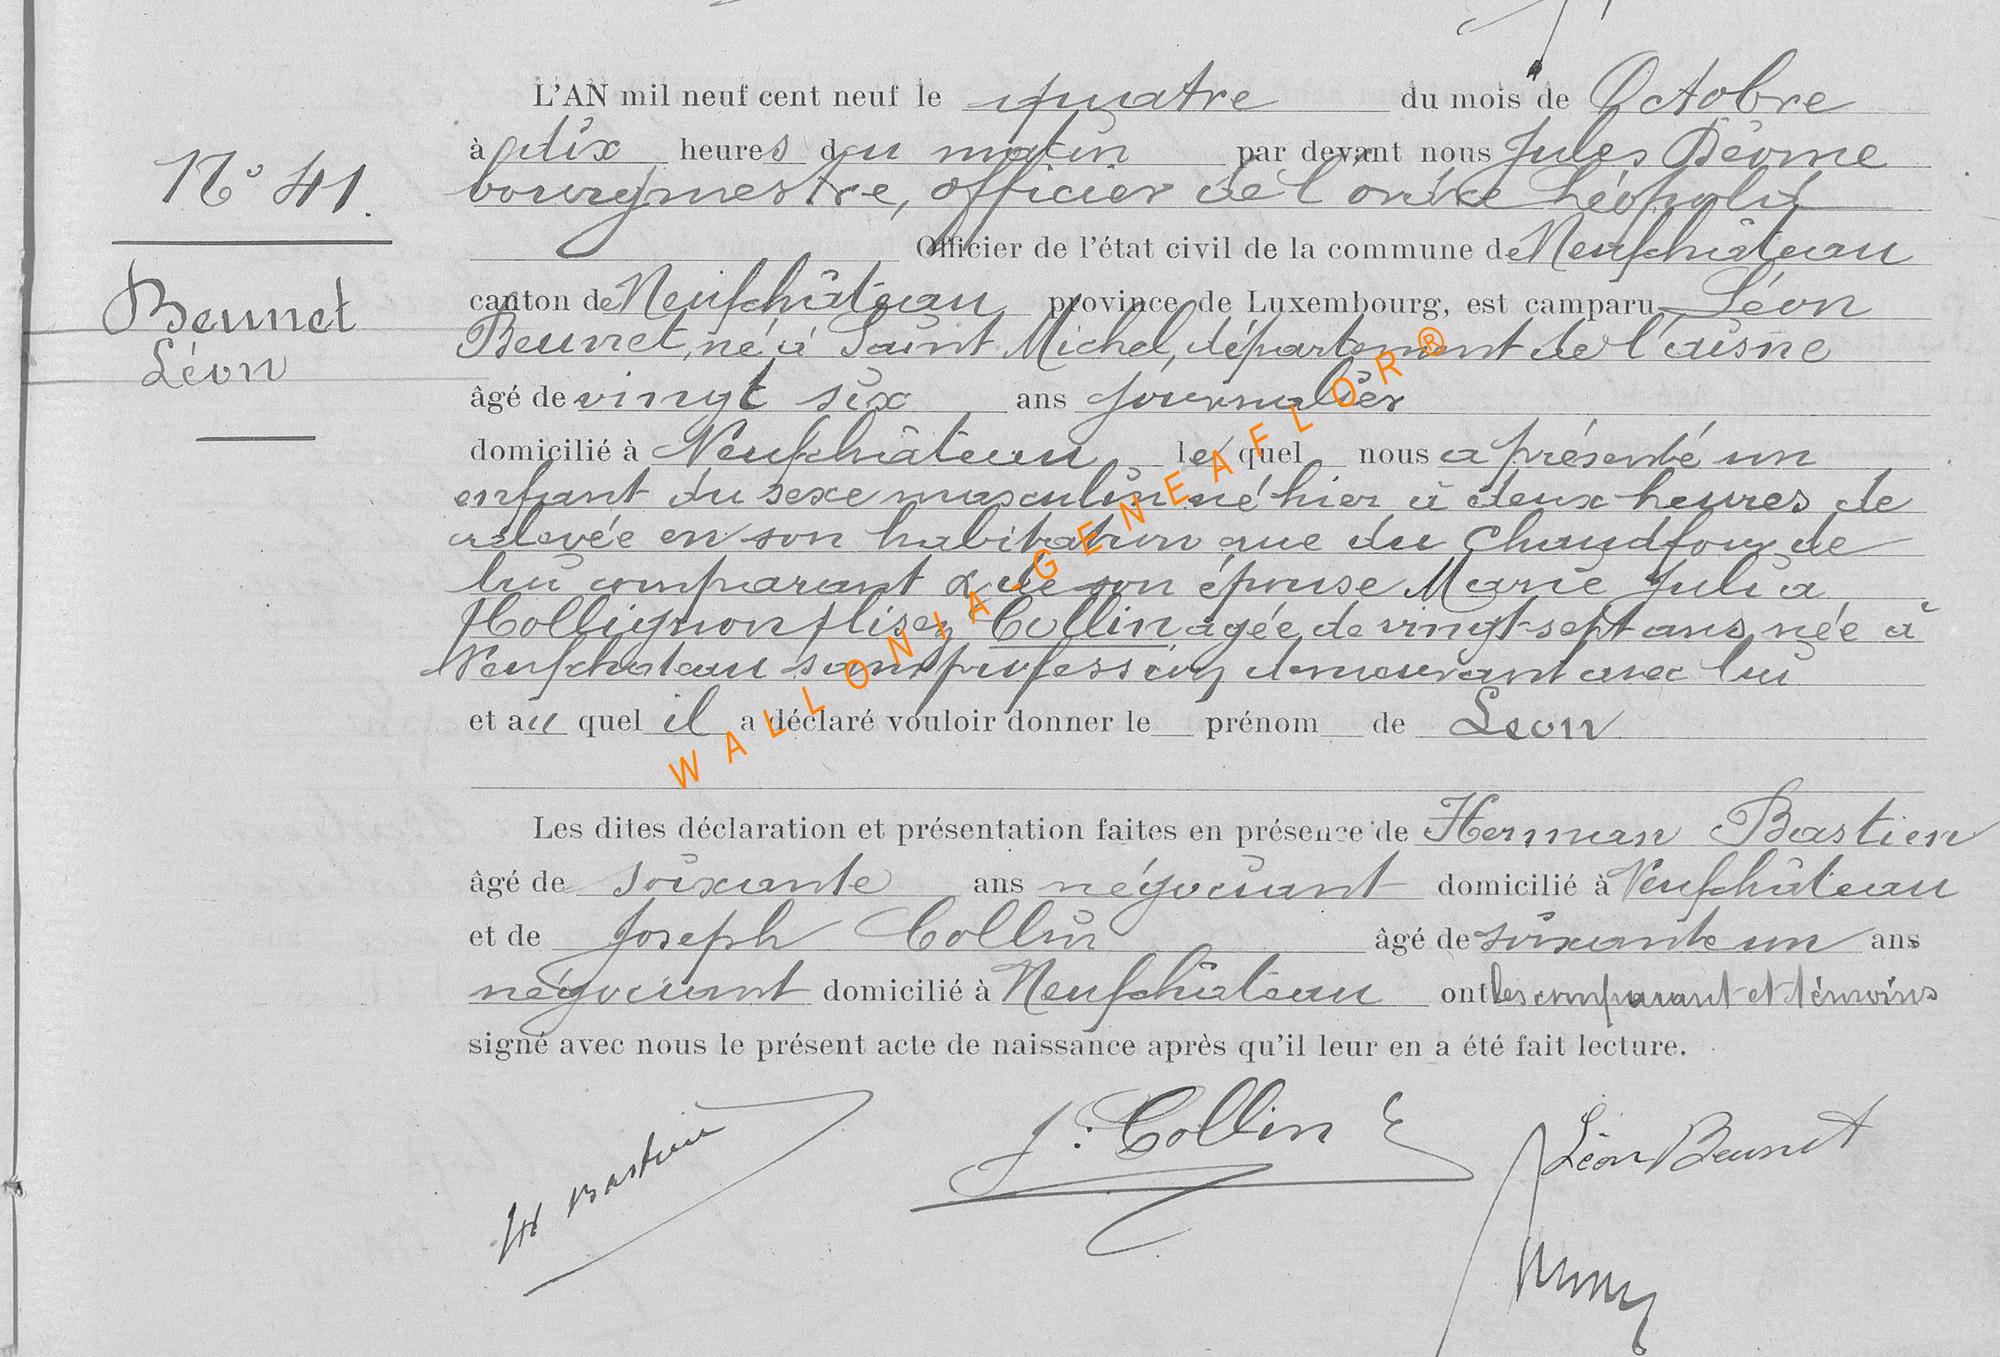 N° 41.
Beunet
Léon
L'AN mil neuf cent neuf le quatre du mois de Octobre
à dix heures du matin par devant nous Jules Déome
bourgmestre, officier de l'ordre Léopold
Officier de l'état civil de la commune de Neufchâteau
canton de Neufchâteau province de Luxembourg, est camparu Léon
Beunet, né à Saint Michel, département de l'aisne
âgé de vingt six ans journalier
domicilié à Neufchâteau le quel nous a présenté un
enfant du sexe masculin né hier à deux heures de
relevée en son habitation rue du Chaudfour de
lui comparant & de son épouse Marie Julia
Collignon Collin agée de vingt-sept ans, née à
Neufchateau sans profession demeurant avec lui
et au quel il a déclaré vouloir donner le prénom de Léon
Les dites déclaration et présentation faites en présence de Herman Bastien
âgé de soixante ans négociant domicilié à Neufchâteau
et de Joseph Collin âgé de soixante un ans
négociant domicilié à Neufchâteau ont les comparant et témoins
signé avec nous le présent acte de naissance après qu'il leur en a été fait lecture.
H Bastien
J. Collin
Léon Beunet
WALLONIA-GENEAFLOR®